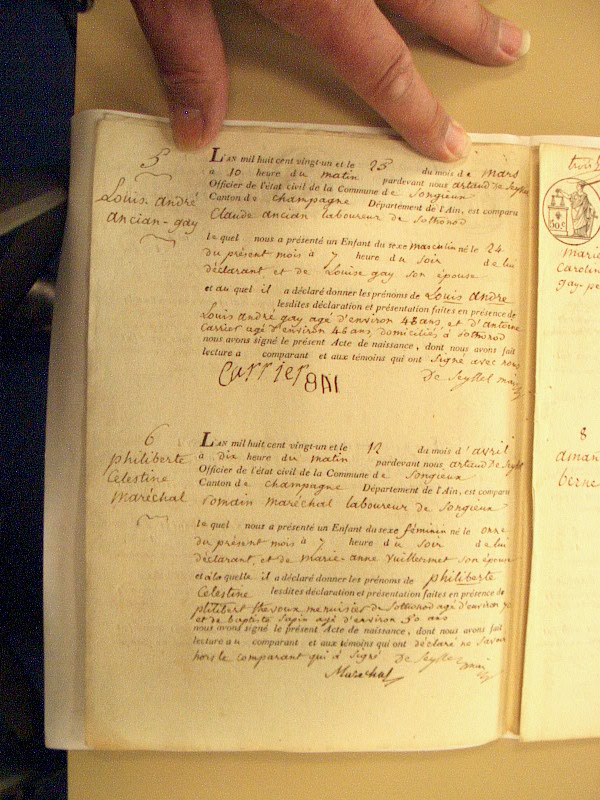 5
Louis andré
ancian-gay
L'AN mil huit cent vingt-un et le 25 du mois de mars
à 10 heure du matin pardevant nous artaud De Seyssel
Officier de l'état civil de la Commune de Songieux
Canton de champagne Département de l'Ain, est comparu
Claude ancian laboureur de Sothonod
le quel nous a présenté un Enfant du sexe masculin né le 24
du présent mois à 7 heure du soir de lui
déclarant et de Louise gay son épouse
et au quel il a déclaré donner les prénoms de Louis andre
lesdites déclaration et présentation faites en présence de
Louis andré gay agé d'environ 48 ans, et d'antoine
Carrier agé d'environ 46 ans, domiciliés à Sothonod
nous avons signé le présent Acte de naissance, dont nous avons fait
lecture à comparant et aux témoins qui ont signé avec nous
Carrier
De Seyssel
6
philiberte
Celestine
maréchal
L'AN mil huit cent vingt-un et le 12 du mois d'avril
à dix heure du matin pardevant nous artaud De Seyssel
Officier de l'état civil de la Commune de Songieux
Canton de champagne Département de l'Ain, est comparu
romain maréchal laboureur de Songieux
le quel nous a présenté un Enfant du sexe féminin né le onze
du présent mois à 7 heure du soir de lui
déclarant, et de marie-anne Vuillermet son épouse
et à la quelle il a déclaré donner les prénoms de philiberte
Celestine lesdites déclaration et présentation faites en présence de
philibert thevoux menuisier de Sothonod agé d'environ
et de baptiste Sapin agé d'environ 50 ans
nous avons signé le présent Acte de naissance, dont nous avons fait
lecture au comparant et aux témoins qui ont déclaré ne savoir
hors le comparant qui à signé De Seyssel
Marechal
50c
marie
Carolin
gay-pe
8
aman
berne